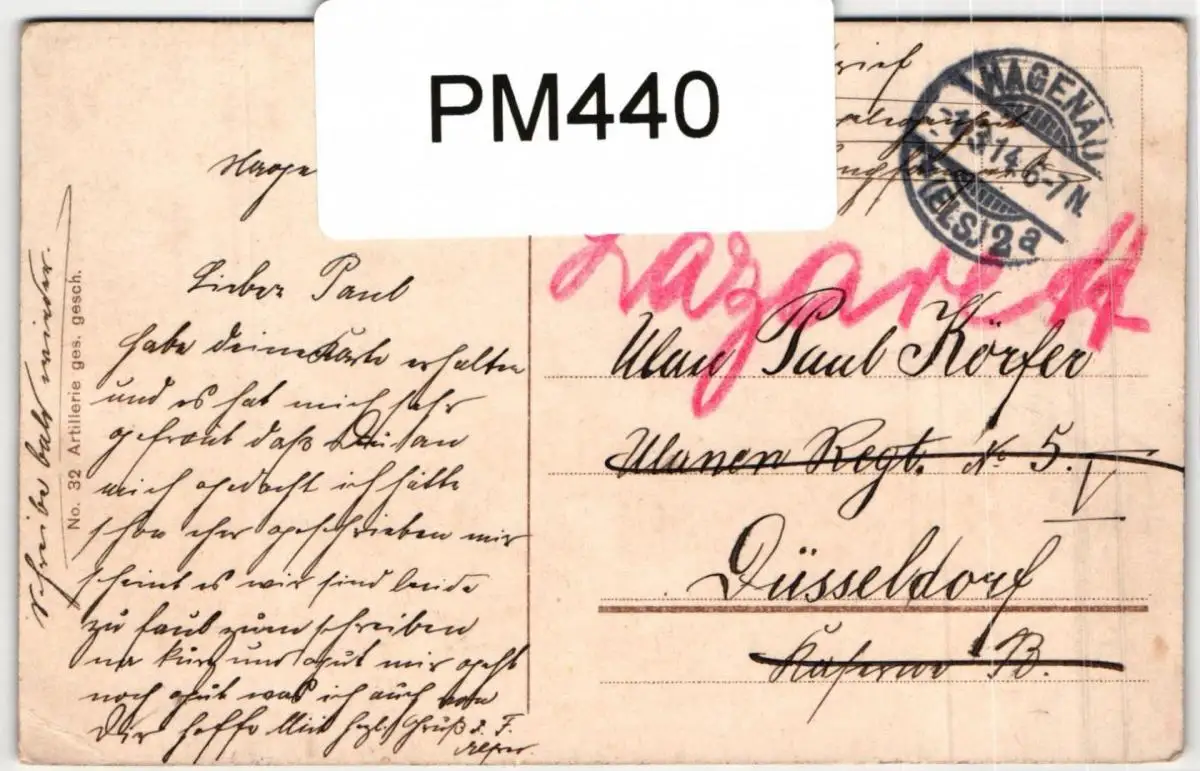 PM440
HAGENAU
6-7 N.
(ELS.) 2a
Lieber Paul
habe deine Karte erhalten
und es hat mich sehr
gefreut daß Du an
mich gedacht ich hätte
schon eher geschrieben mir
scheint es wir sind beide
zu faul zum schreiben
na kurz und gut mir geht
noch gut was ich auch von
Dir hoffe Mit herzl. Gruß d. F.
Schreibe bald wieder.
No. 32 Artillerie ges. gesch.
Lazarett
Ulan Paul Körfer
Ulanen Regt. No 5.
V
Düsseldorf
Kaserne B.